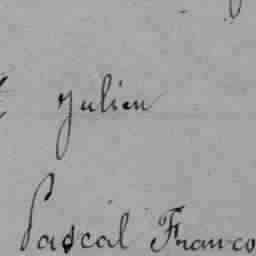 Julien
Pascal Franco